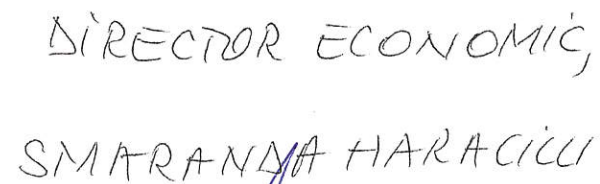 DIRECTOR ECONOMIC,
SMARANDA HARACICCI